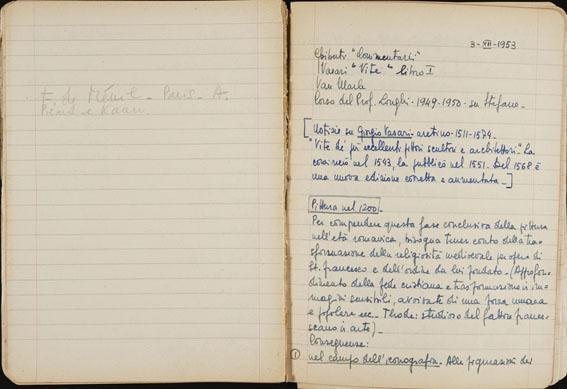 F. de Ménil - Paris - A.
Picard et Kaan.
3-VII-1953
Ghiberti "Commentarii"
Vasari "Vite" libro I
Van Marle
Corso del Prof. Longhi - 1949-1950 - su Stefano -
[Notizie su Giorgio Vasari - aretino - 1511-1574 -
"Vite de' più eccellenti pittori scultori e architettori" - La
cominciò nel 1543, la pubblicò nel 1551. Del 1568 è
una nuova edizione corretta e aumentata -]
Pittura nel 1200
Per comprendere questa fase conclusiva della pittura
nell'età romanica, bisogna tener conto della tra-
sformazione della religiosità medioevale per opera di
St. Francesco e dell'ordine da lui fondato - (Approfon-
dimento della fede cristiana e trasformazione in im-
magini sensibili, avvivate di una forza umana
e popolare ecc - Thode: studioso del fattore france-
scano in arte) -
Conseguenze:
① nel campo dell'iconografia. Alle figurazioni dei